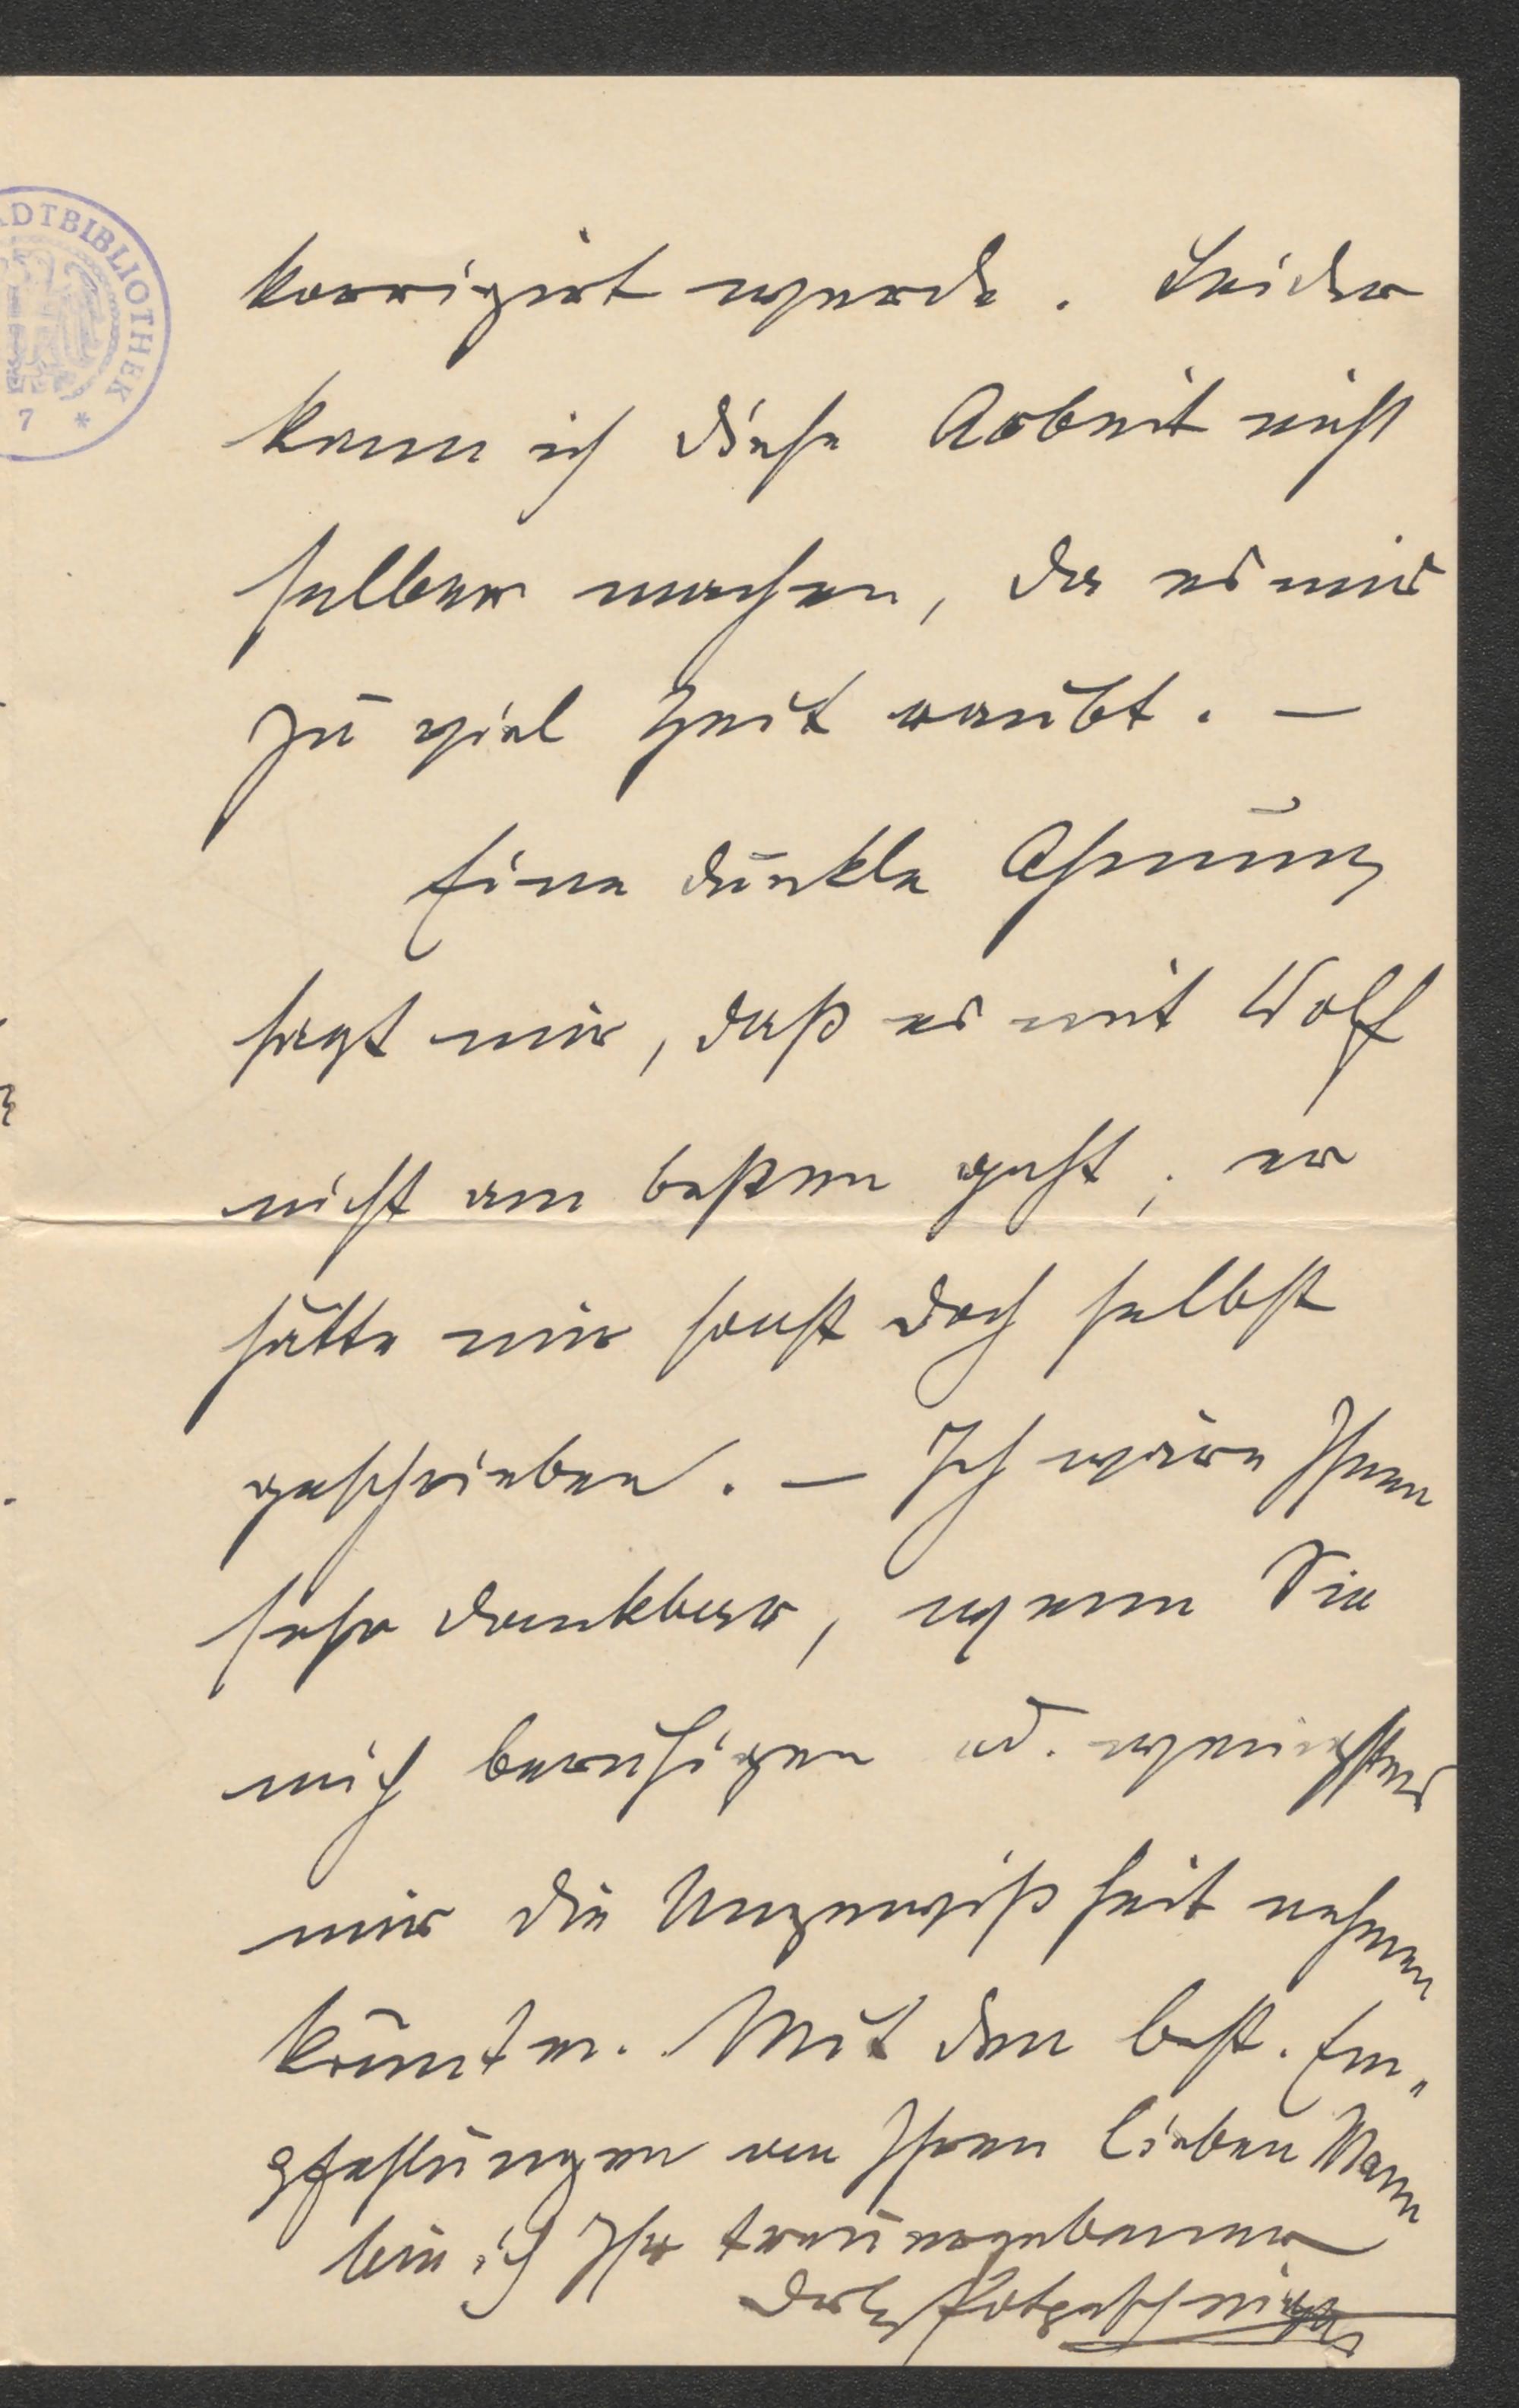 ADTBIBLIOTHEK
7 *
korrigirt werde. Leider
kann ich diese Arbeit nicht
selber machen, da es mir
zu viel Zeit raubt. –
Eine dunkle Ahnung
sagt mir, daß es mit Wolf
nicht am besten geht; er
hätte mir sonst doch selbst
geschrieben. – Ich wäre Ihnen
sehr dankbar, wenn Sie
mich beruhigen od. wenigstens
mir die Ungewißheit nehmen
könnten. Mit den best. Em„
pfehlungen an Ihren lieben Mann
bin ich Ihr treuergebener
Potpeschnigg